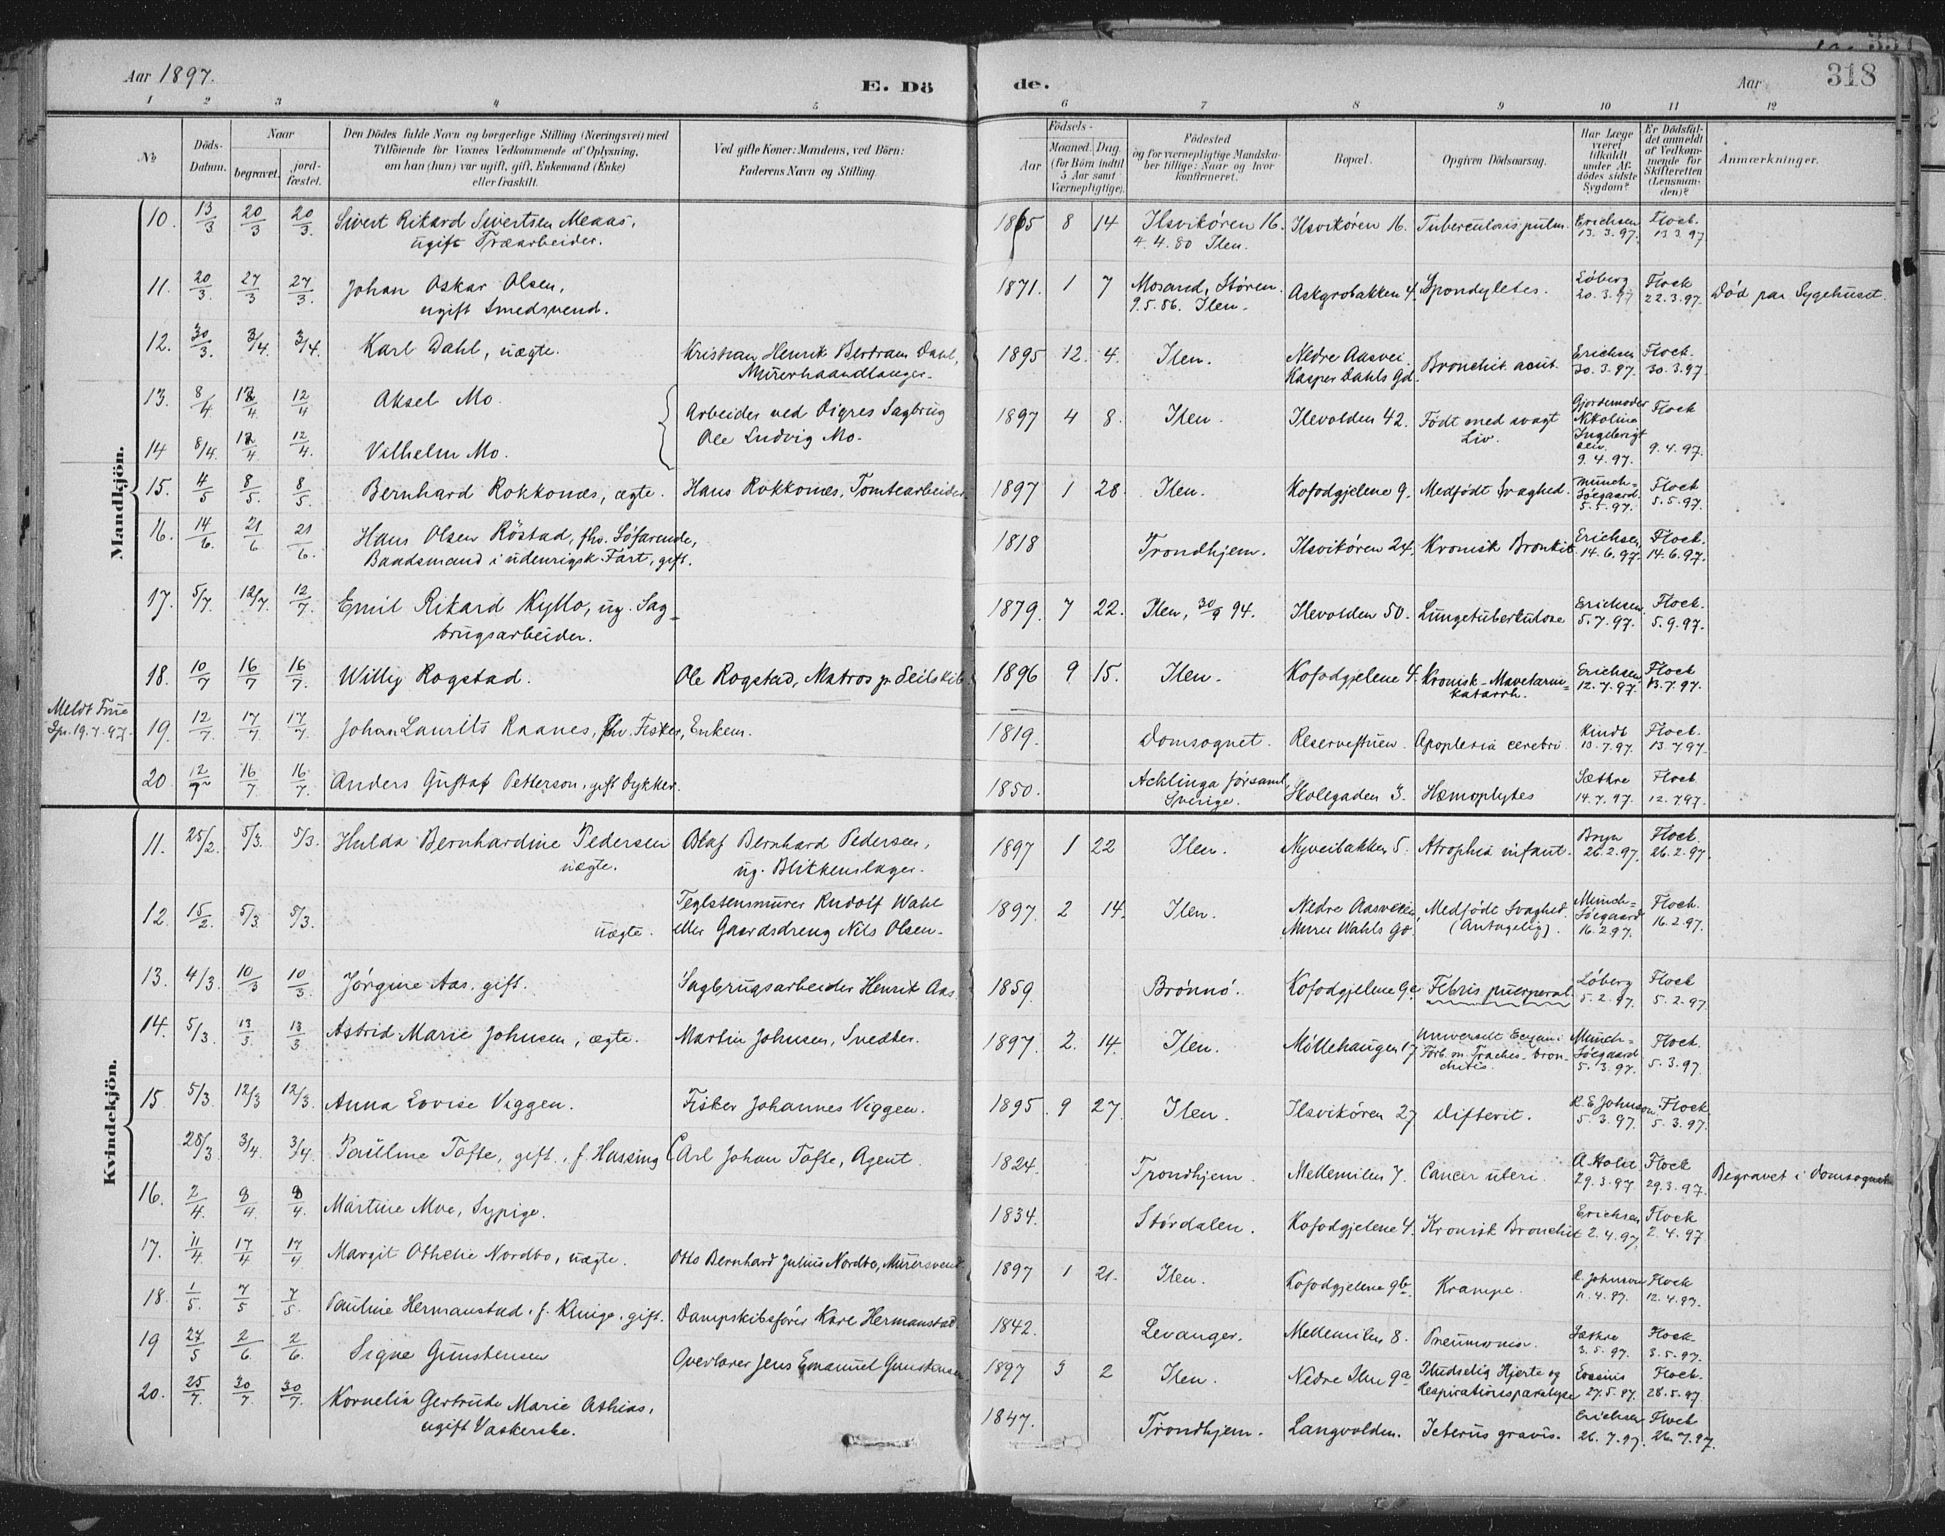 Aar 1897.
E. Dö
de.
Aar
318
1 2 3 4 5 6 7 8 9 10 11 12
№
Döds-Datum.
Naar
begravet.
jordfæstet.
Den Dödes fulde Navn og borgerlige Stilling (Næringsvei) med
Tilföiende for Voxnes Vedkommende af Oplysning,
om han (hun) var ugift, gift, Enkemand (Enke)
eller fraskilt.
Ved gifte Koner: Mandens, ved Börn:
Faderens Navn og Stilling.
Födsels-
Aar
Maaned. Dag.
(for Börn indtil
5 Aar samt
Værnepligtige).
Födested
og for værnepligtige Mandskaber tillige: Naar og hvor
konfirmeret.
Bopæl.
Opgiven Dödsaarsag.
Har Læge
været
tilkaldt
under Afdödes sidste
Sygdom?
Er Dödsfaldet anmeldt
af Vedkommende for
Skifteretten
(Lensmanden)?
Anmærkninger.
Mandkjön.
10. 13/3 20/3 20/3 Sivert Rikard Sivertsen Meaas, 1865 8 14 Ilsvikören 16. Ilsvikören 16. Tuberculosis pulm. Erichsen 13.3.97. Flock. 13.3.97
ugift Træarbeider. 4.4.80 Ilen.
11. 20/3 27/3 27/3 Johan Oskar Olsen, 1871. 1 7 Mosand, Støren. Askgrobakken 4. Spondylites. Løberg 20.3.97 Flock 22.3.97. Död paa Sygehuset.
ugift Smedsvend. 9.5.86. Ilen.
12. 30/3 3/4. 3/4. Karl Dahl, uægte. Kristian Henrik Bertram Dahl, 1895 12. 4. Ilen. Nedre Aasvei Bronchit. acut. Erichsen 30.3.97. Flock. 30.3.97.
Murerhaandlanger. Kasper Dahls Gd.
13. 8/4 12/4 12/4 Aksel Mo. Arbeider ved Digres Sagbrug 1897 4 8. Ilen. Ilevolden 42. Födt med svagt Gjordemoder Nikolina Flock
14 8/4. 12/4 12/4. Vilhelm Mo. Ole Ludvig Mo. Liv. 9.4.97. 9.4.97.
15. 4/5 8/5 8/5 Bernhard Rokkones, ægte. Hans Rokkones, Tomtearbeider. 1897 1 28. Ilen. Kofodgjelene 9. Medfödt Svaghed. Münch-Søegaard. 5.5.97. Flock 5.5.97.
16. 14/6 21/6 21/6. Hans Olsen Röstad, fhv. Söfarende, 1818 Trondhjem. Ilsvikören 24. Kronisk Bronkit Erichsen 14.6.97. Flock. 14.6.97.
Baadsmand i udenrigsk Fart, gift.
17. 5/7 12/7. 12/7. Emil Rikard Kyllo, ug. Sag- 1879. 7 22. Ilen, 30/9 94. Ilevolden 50. Lungetuberkulose Erichsen. 5.7.97. Flock. 5.9.97.
brugsarbeider.
18. 10/7 16/7 16/7. Willy Rogstad. Ole Rogstad, Matros pr. Seilskib. 1896 9 15. Ilen. Kofodgjelene 4. Kronisk Mavetarm- Erichsen 12.7.97. Flock 13.7.97.
katarrh.
Meldt
19.7.97.
19. 12/7. 17/7 17/7 Johan Laurits Raanes, fhv. Fisker, Enkem. 1819. Domsognet. Reservestuen. Apoplexia cerebri. Kindt 13.7.97. Flock. 13.7.97.
20. 12/7 16/7 16/7. Anders Gustaf Petterson, gift Dykker. 1850. Acklinga församl. Sverige. Skolegaden 3. Hæmoplytes Sæthre 14.7.97. Flock 12.7.97.
Kvindekjön.
11. 25/2 5/3. 5/3. Hulda Bernhardine Pedersen Olaf Bernhard Pedersen, 1897 1 22 Ilen. Nyveibakken 5. Atrophia infant. Bryn 26.2.97. Flock. 26.2.97.
uægte. ug. Blikkenslager.
12 15/2. 5/3. 5/3. Teglstensmurer Rudolf Wahl 1897. 2 14. Ilen. Nedre Aasveien, Medföde Svaghed Münch-Søegaard 16.2.97. Flock. 16.2.97.
uægte. eller Gaardsdreng Nils Olsen. Murer Wahls Gd. (Antagelig).
13. 4/3. 10/3 10/3. Jørgine Aas. gift. Sagbrugsarbeider Henrik Aas. 1859. Brønnø. Kofodgjelene 9a Febris puerperal. Løberg 5.2.97. Flock 5.2.97.
14. 5/3. 13/3. 13/3 Astrid Marie Johnsen, ægte. Martin Johnsen, Snedker. 1897. 2. 14. Ilen. Möllehaugen 17 Universelt Eczem i Forb. m. Tracheo-bronchitis. Münch-Søegaard 5.3.97. Flock. 5.3.97.
15 5/3. 12/3 12/3. Anna Lovise Viggen. Fisker Johannes Viggen. 1895 9 27. Ilen. Ilsvikören 27 Difterit. R. E. Johnson 5.3.97. Flock 5.3.97.
28/3 3/4 3/4. Pauline Tofte, gift. f. Hassing Carl Johan Tofte, Agent. 1824. Trondhjem. Mellemilen 7. Cancer uteri. A. Holst 29.3.97. Flock 29.3.97. Begravet i Domsognet
16. 2/4 8/4 8/4. Martine Moe, Sypige. 1834. Stördalen. Kofodgjelene 4. Kronisk Bronchit Erichsen 2.4.97. Flock 2.4.97.
17. 11/4 17/4 17/4 Margit Othelie Nordbo, uægte. Otto Bernhard Julius Nordbo, Murersvend. 1897 1 21. Ilen. Kofodgjelene 9b. Krampe. Johnson 11.4.97. Flock 12.4.97.
18. 1/5. 7/5 7/5. Pauline Hermanstad, f. Kluige, gift. Dampskibsfører Karl Hermanstad. 1842. Levanger. Mellemilen 8. Pneumonia. Sæthre 3.5.97. Flock 3.5.97.
19 27/5 2/6 2/6. Signe Gunstensen Overlærer Jens Emanuel Gunstensen. 1897 3 2 Ilen. Nedre Ilen 9a Pludselig Hjerte og Respirationsparalyse Lossius 27.5.97. Flock. 28.5.97
20. 25/7. 30/7. 30/7. Kornelia Gertrude Marie Athias, 1847. Trondhjem. Langvolden. Icterus gravis. Erichsen 26.7.97. Flock 26.7.97.
ugift Vaskerske.